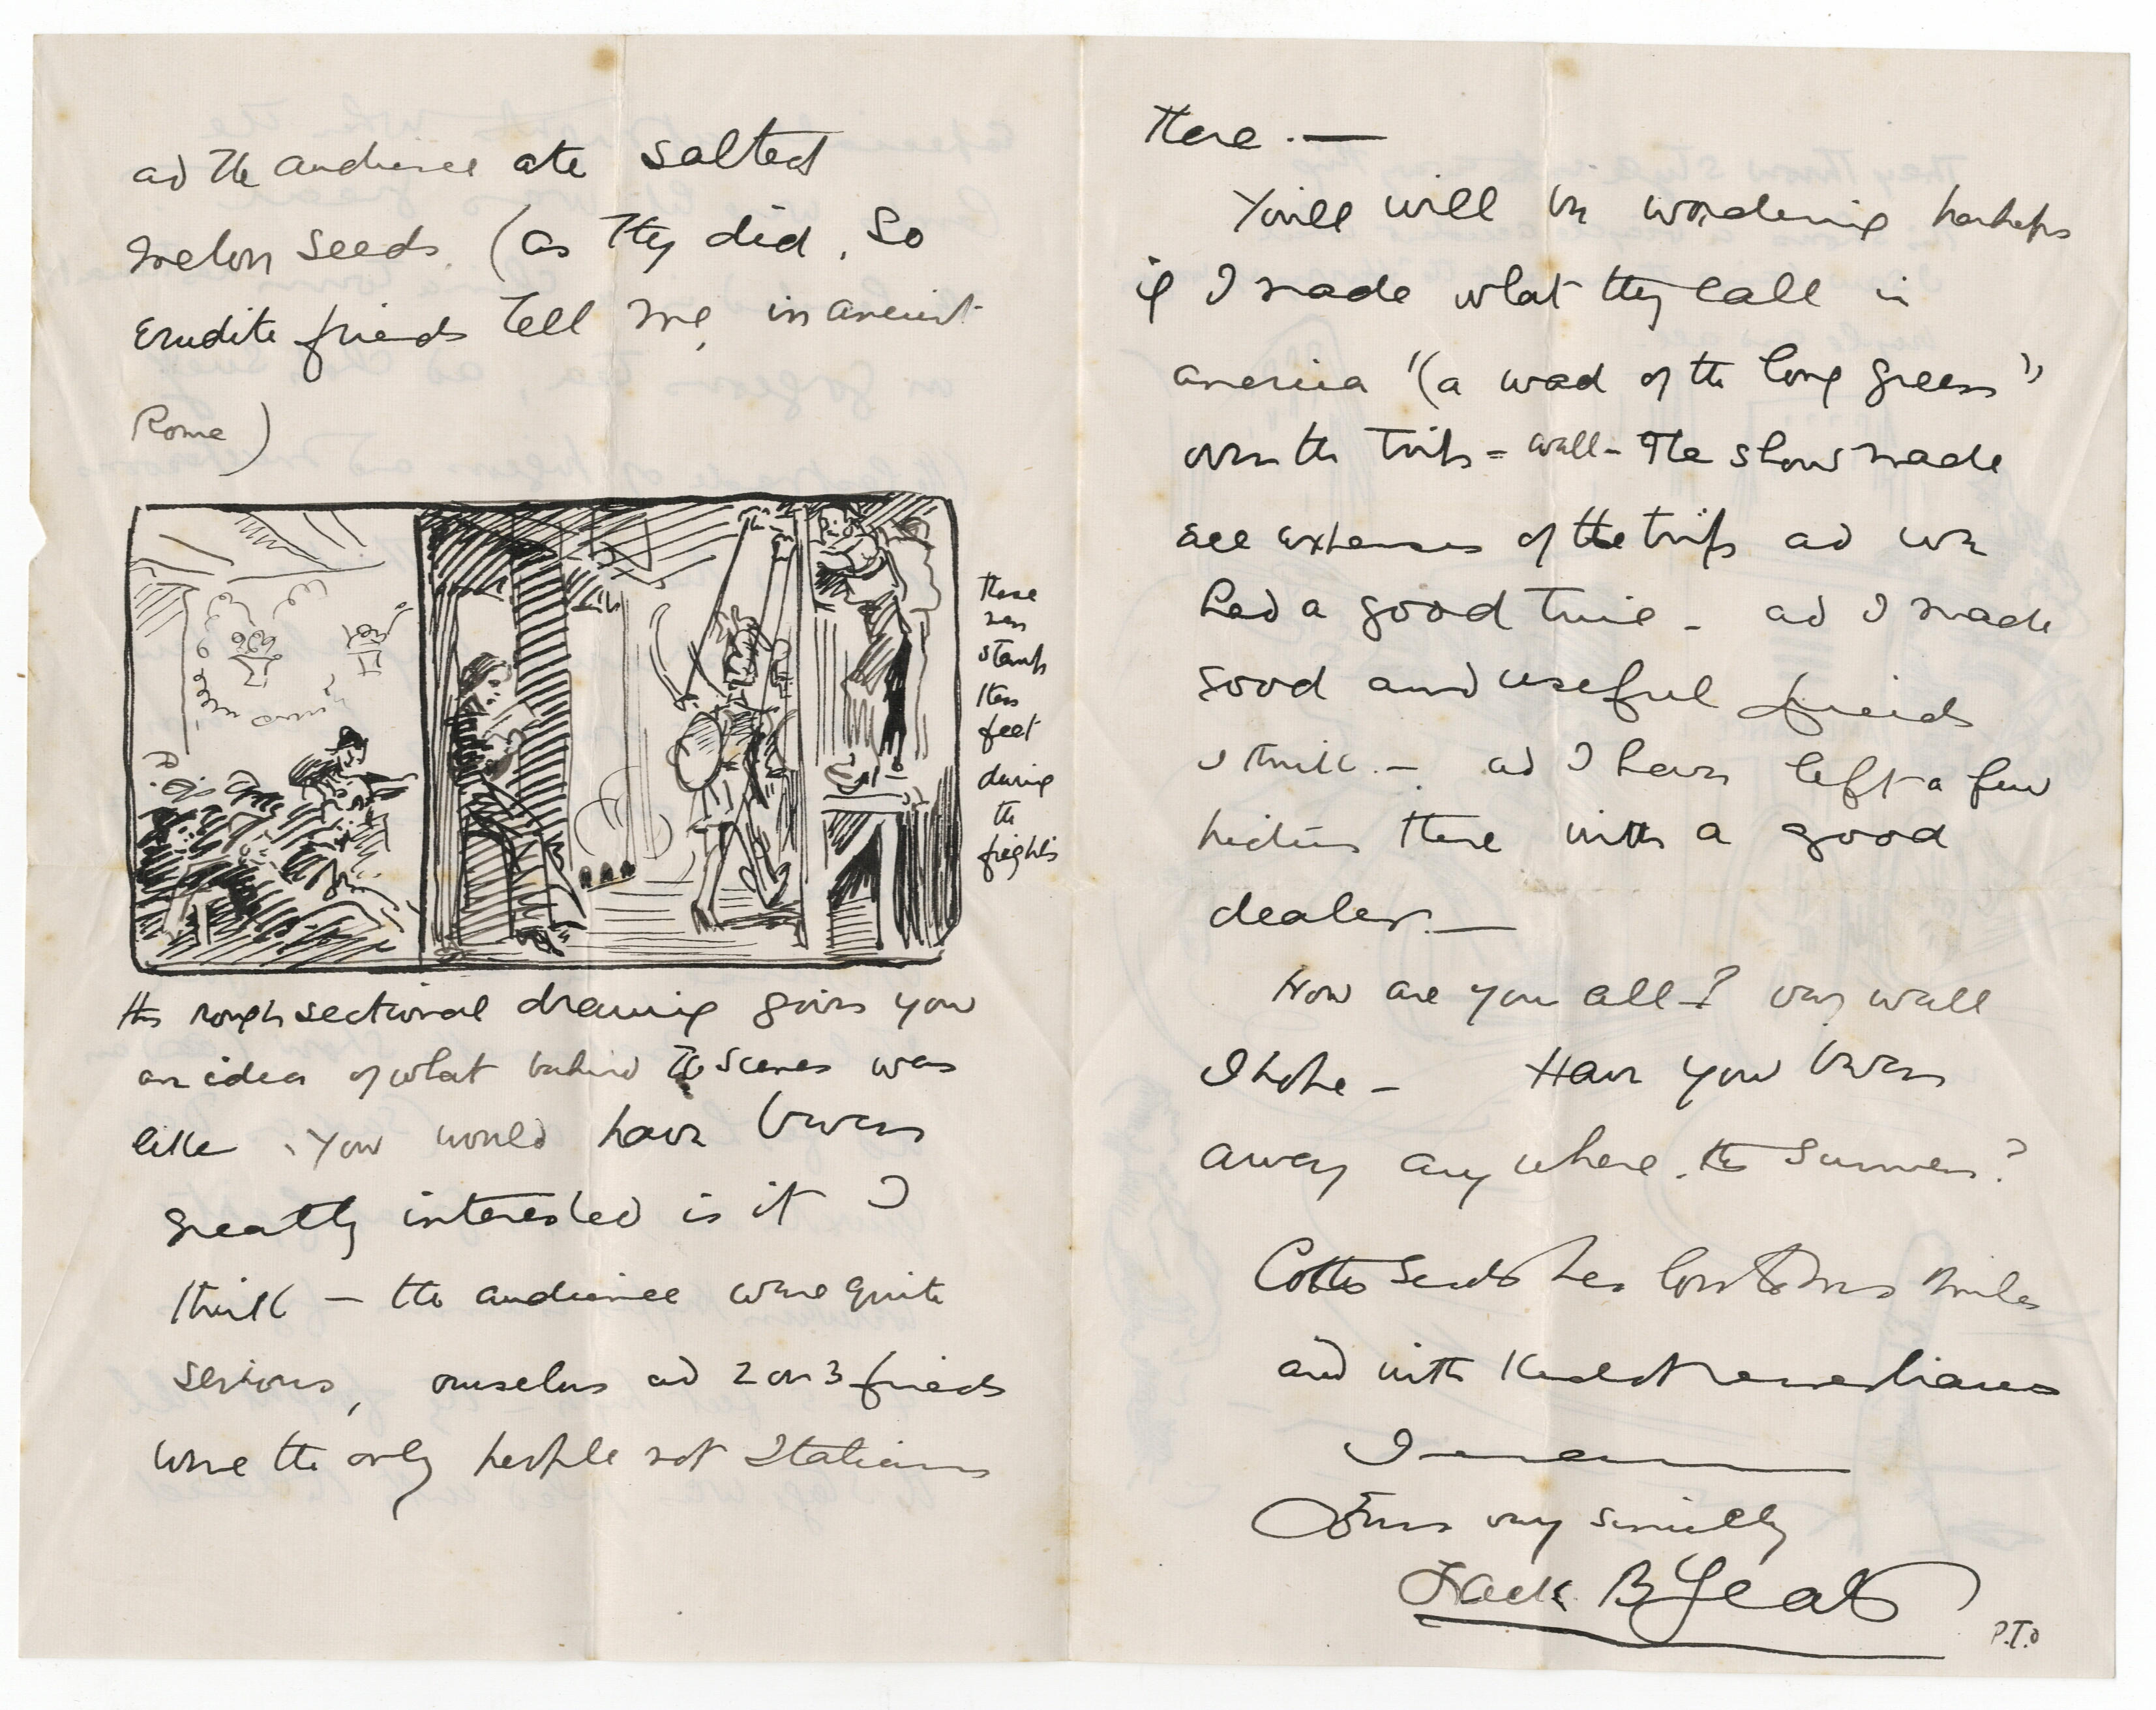 ad the audience ate salted
melon seeds. (as they did, so
erudite friends tell me, in ancient
Rome)
these
men
stamp
their
feet
during
the
fights
this rough sectional drawing gives you
an idea of what behind the scenes was
like. You would have been
greatly interested in it I
think – the audience were quite
serious, ourselves ad 2 or 3 friends
were the only people not Italians
there. —
You'll will be wondering perhaps
if I made what they call in
america "(a wad of the long green"
over the trip = well – The show made
all expenses of the trip ad we
had a good time – ad I made
good and useful friends
I think. – ad I have left a few
pictures there with a good
dealer. —
How are you all? very well
I hope – Have you been
away anywhere. this summer?
Cottie sends her love to Mrs
and with kindest remembrances
I remain
Yours very sincerely
Jack B Yeats
P.T.O